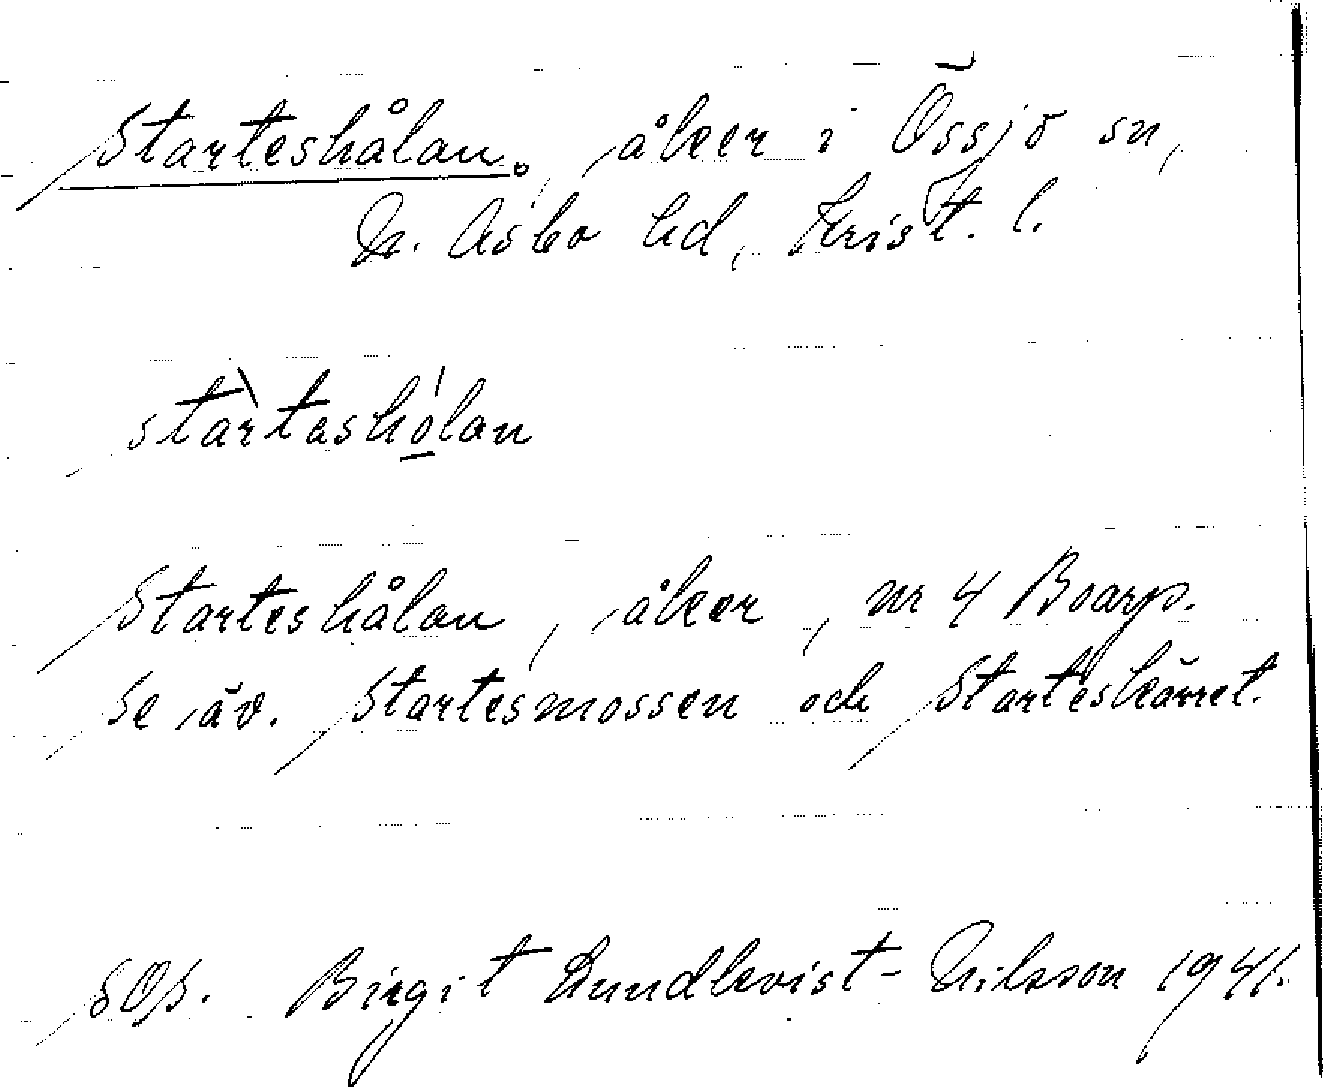 Starteshålan, åker i Össjö sn,
N. Åsbo hd, Krist. l.
stàrtashólan
Starteshålan, åker, nr 4 Boarp.
Se äv. Startesmossen och Starteskärret.
SOS. Birgit Lundkvist-Nilsson 1941.